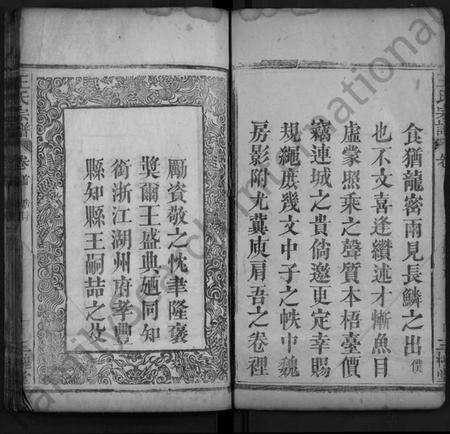 食猶龍密雨見長鱗之出價
也不文喜逢纘述才慚魚目
虛蒙照乘之聲質本梧臺價
竊連城之貴倘邀更定幸賜
規繩庶幾文中子之帙中魏
房影附尤冀庾肩吾之卷裡
勵資敬之忱聿隆褒
獎爾王盛典迺同知
銜浙江湖州府孝豐
縣知縣王嗣喆之父
王氏宗譜
卷首
王氏宗譜